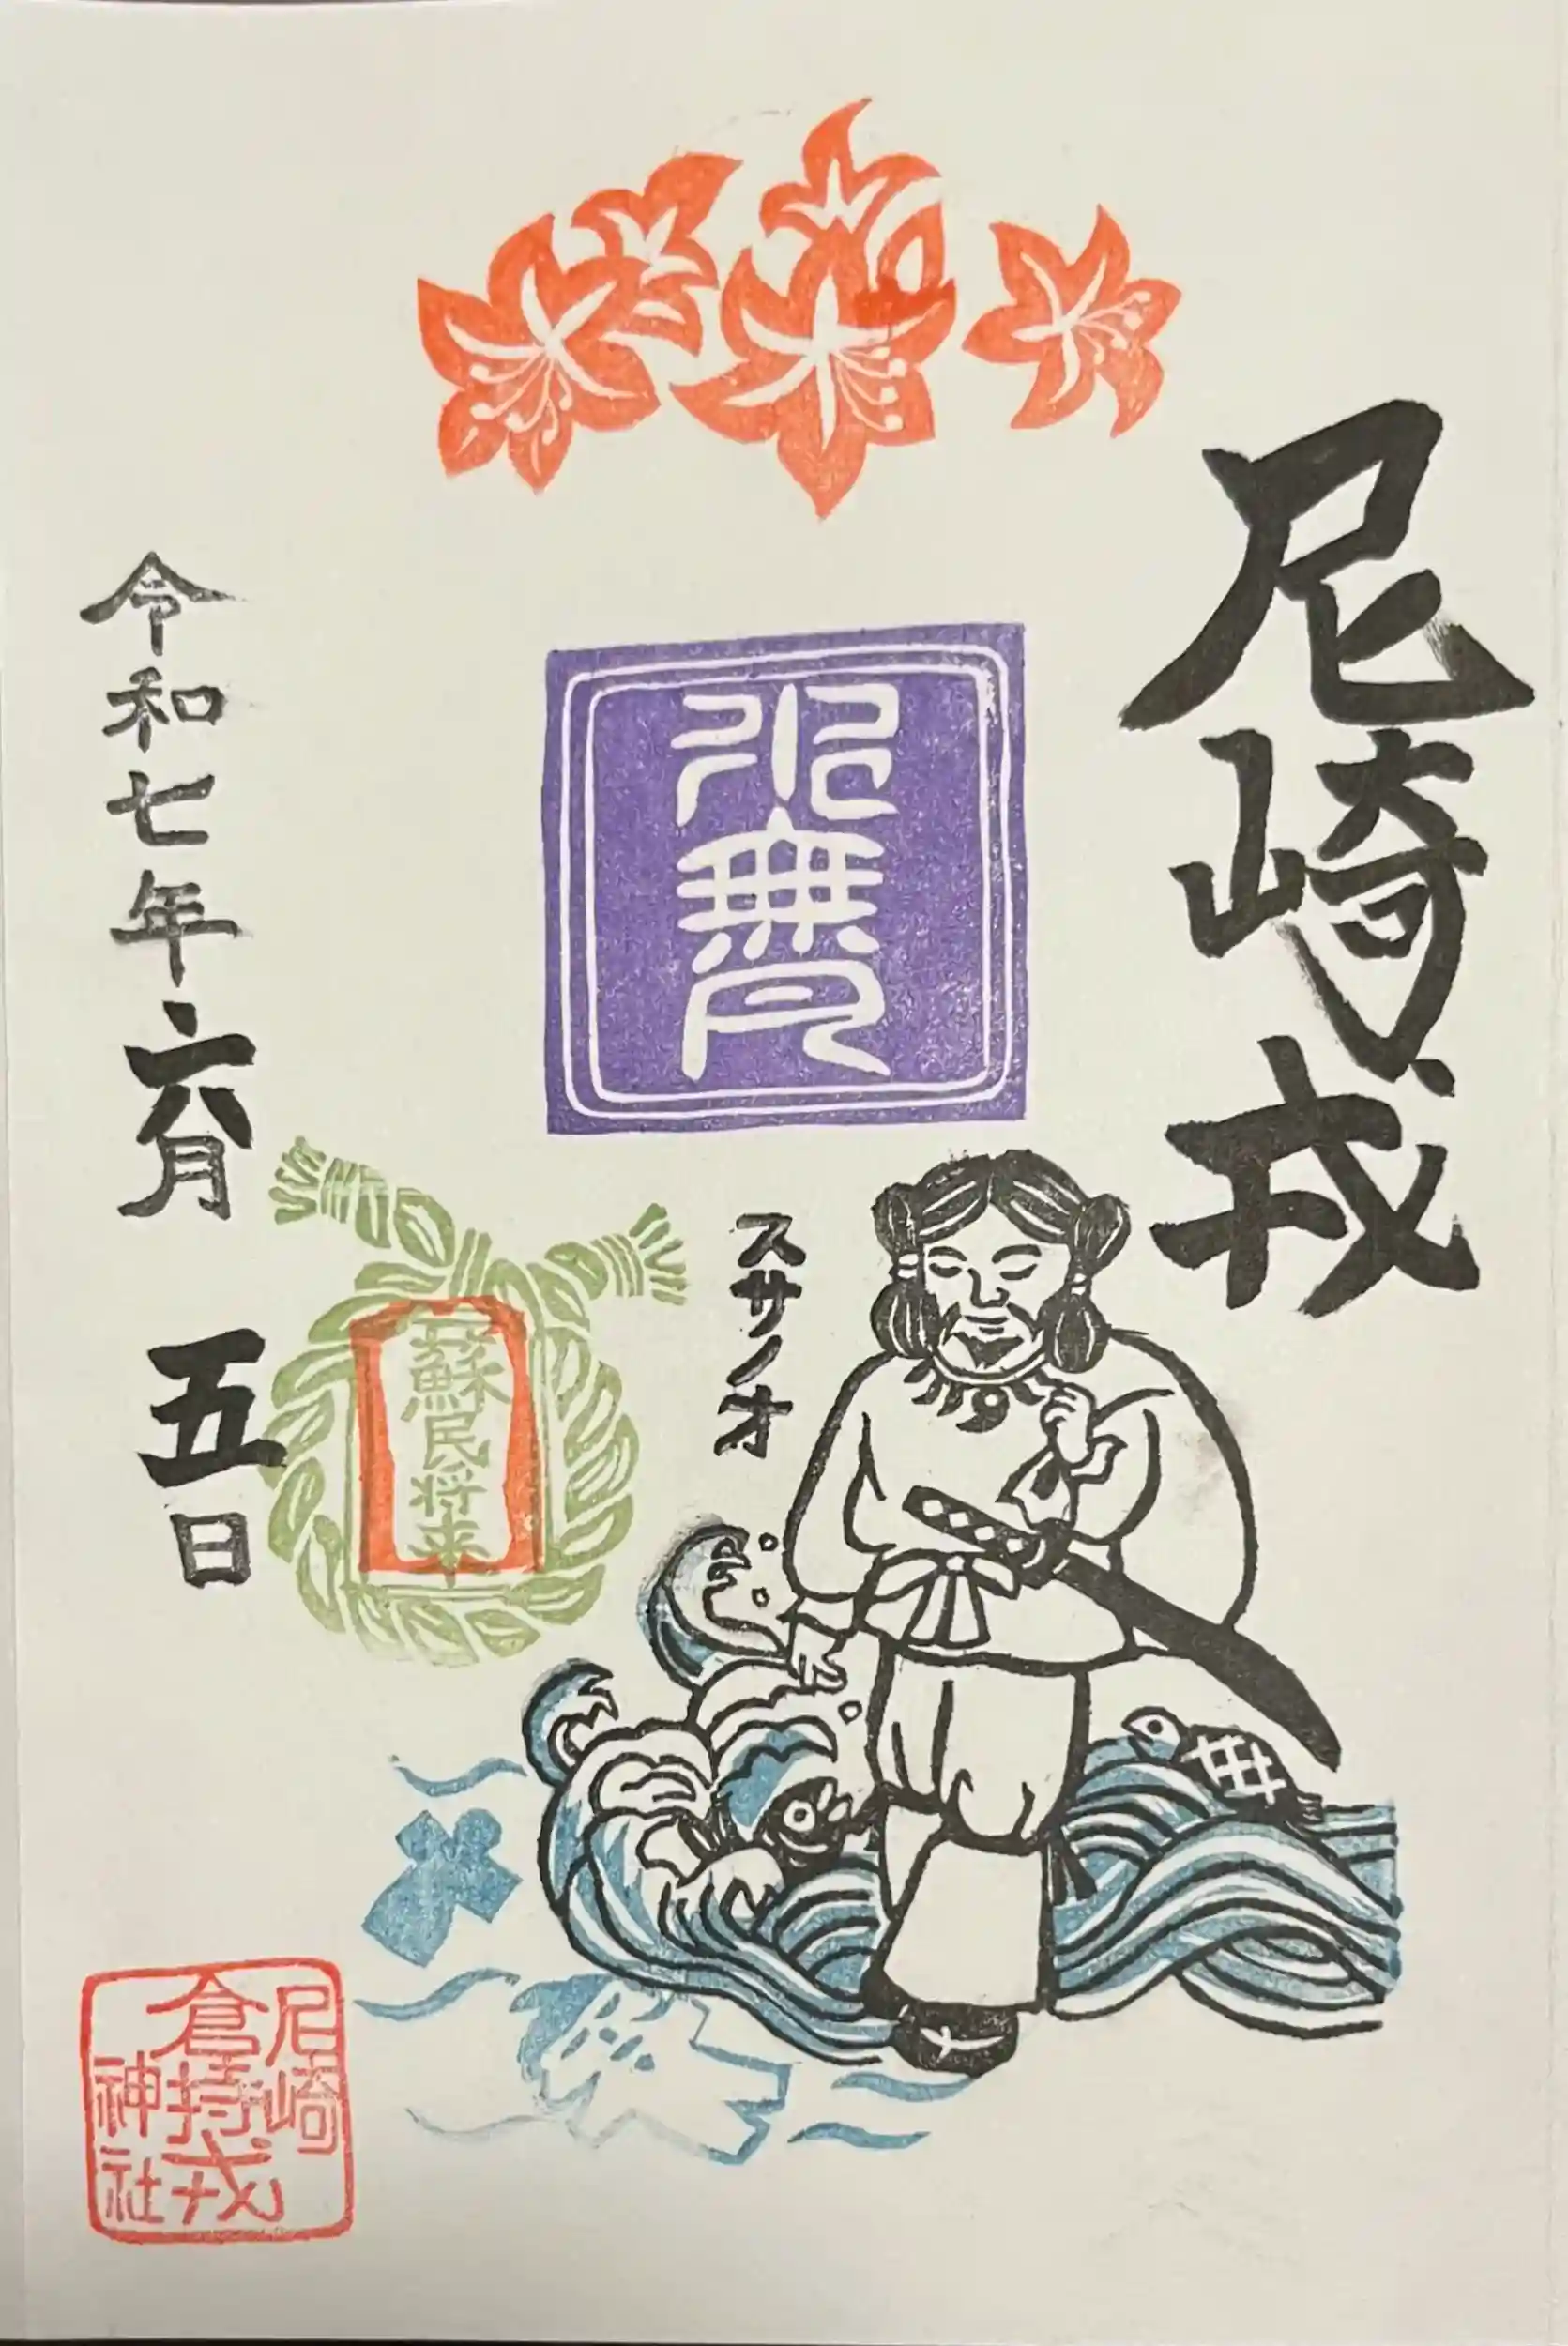 尼崎戎
水無月
スサノオ
蘇民将来
令和七年六月五日
尼崎
倉持戎
神社